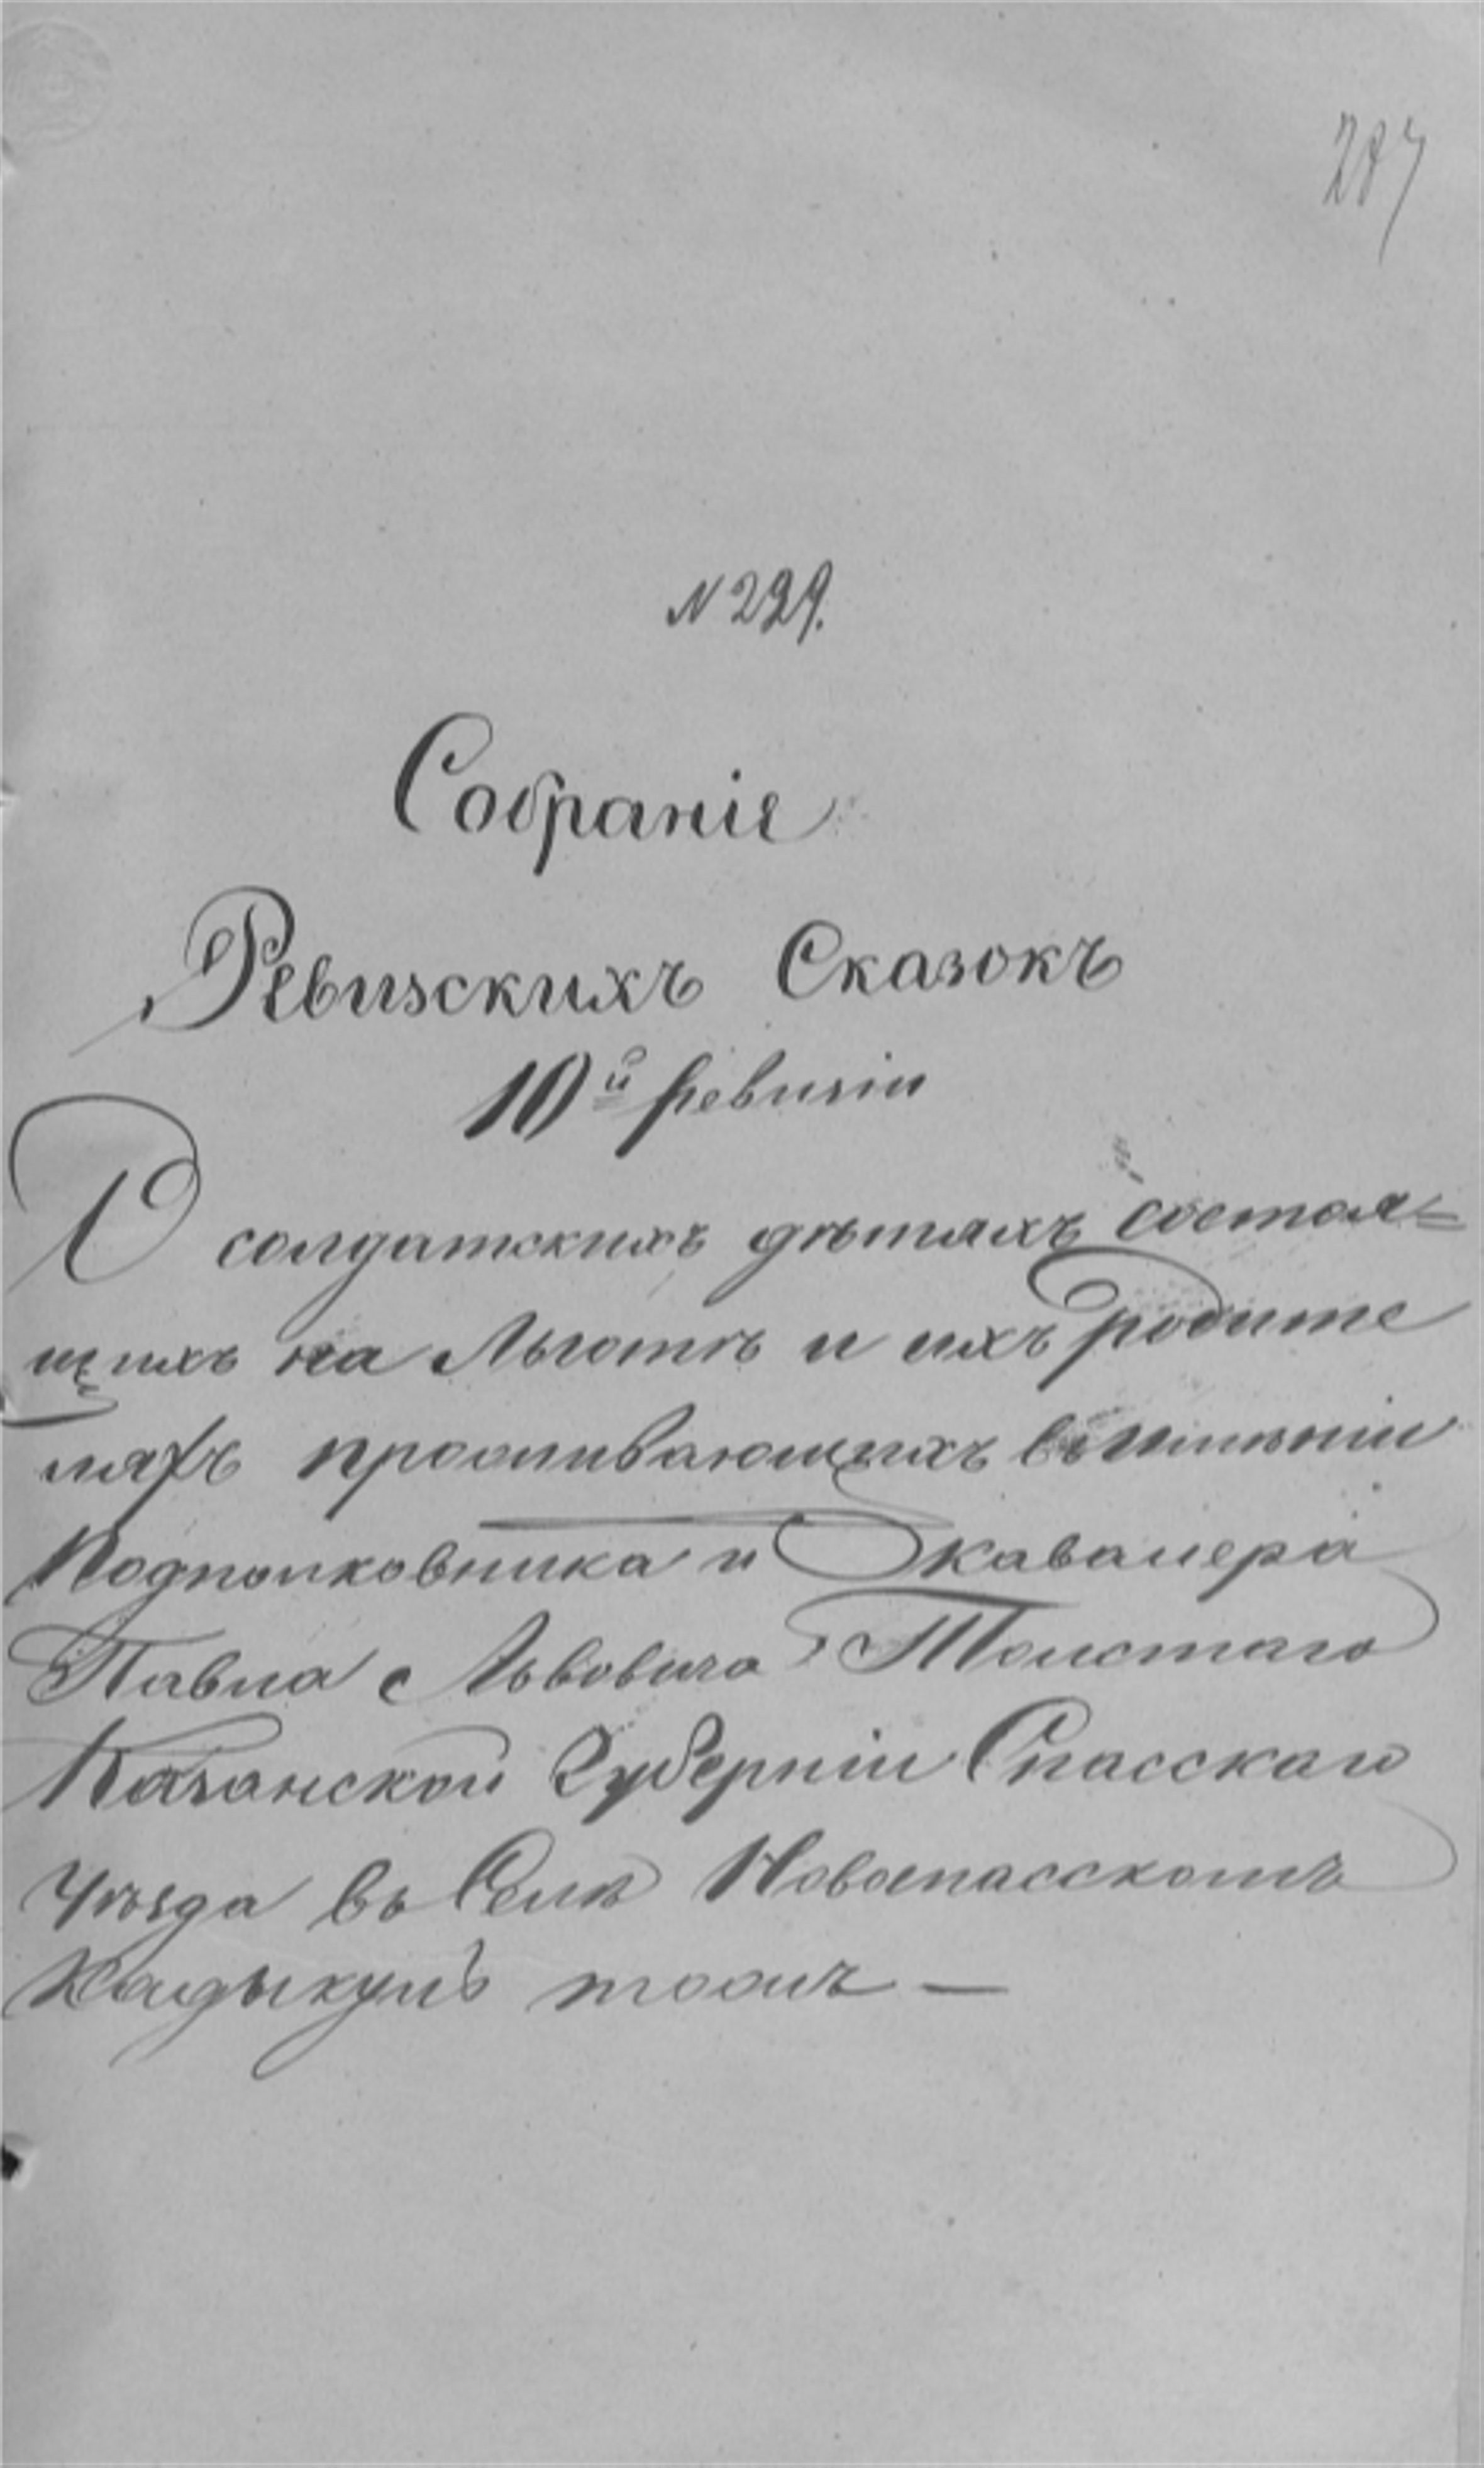 287
N 229.
Собраніе
Ревизскихъ Сказокъ
10й ревизіи
О солдатскихъ дѣтяхъ состоя=
щихъ на Льготѣ и ихъ родите
ляхъ проживающихъ въ имѣніи
Подполковника и Кавалера
Павла Львовича Толстаго
Казанской Губерніи Спасскаго
Уѣзда въ Селѣ Новоспасскомъ
тожъ —